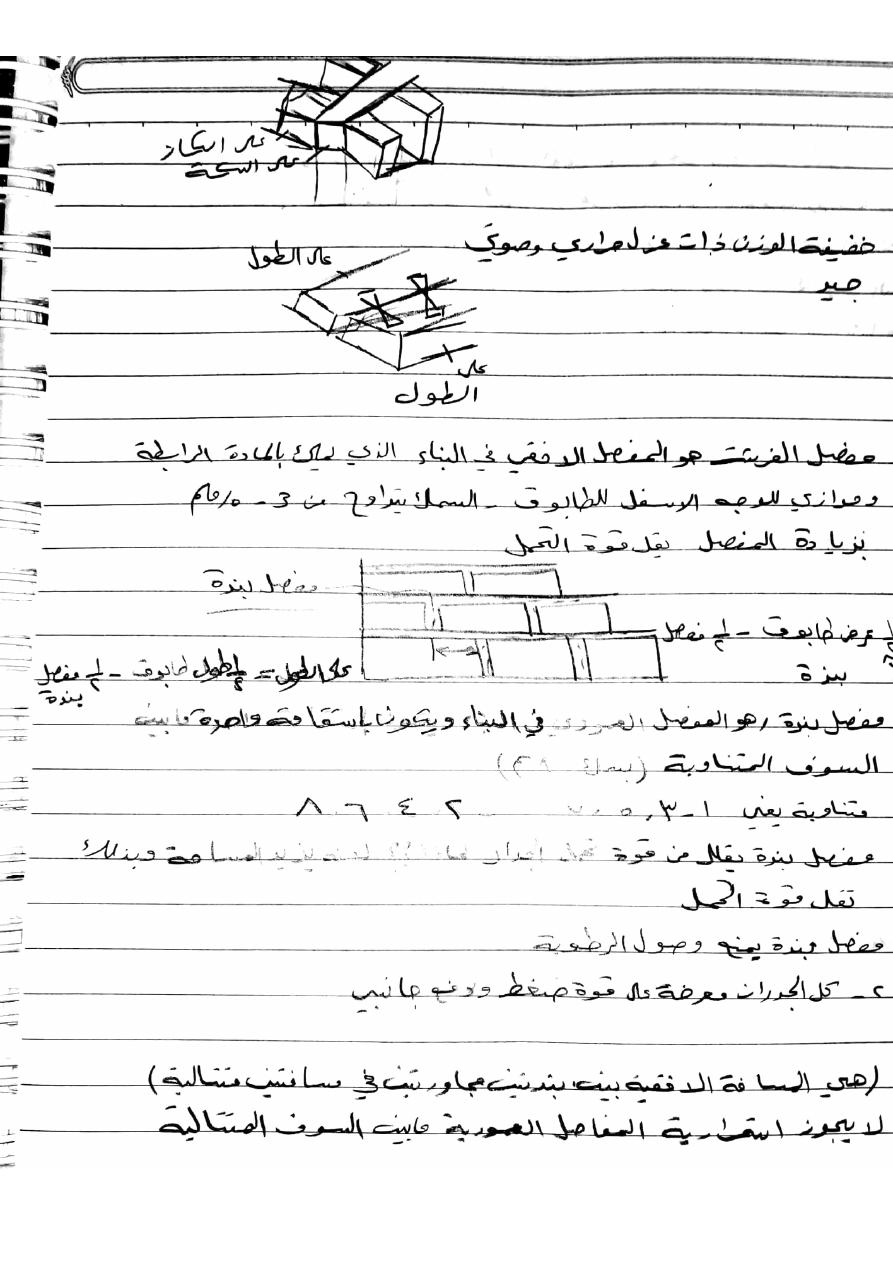 على الكاز
على السكة
خفيفة الوزن ذات عزل حراري وصوتي
جيد
على الطول
على
الطول
مفصل الفرشة هو المفصل الافقي في البناء الذي يملئ بالمادة الرابطة
وموازي للوجه الاسفل للطابوق - السمك يتراوح من 3 -
بزيادة المفصل يقل قوة التحمل
مفصل بندة
عرض طابوق - مفصل
بندة
على الطول = طول طابوق - مفصل
بندة
مفصل بندة / هو المفصل العمودي في البناء ويكون باستقامة واحدة مابين
السوف المتناوبة
متناوبة يعني ١ - ٣ ، ٥ ٢ ٤ ٦ ٨
مفصل بندة يقلل من قوة تحمل الجدار يزيد المساحة وبذلك
تقل قوة التحمل
مفصل بندة يمنع وصول الرطوبة
٢ - كل الجدران معرضة على قوة ضغط ودفع جانبي
(هي المسافة الافقية بين بندتين مجاورتين في مسافتين متتالية)
لا يجوز استمرارية المفاصل العمودية مابين السوف المتتالية